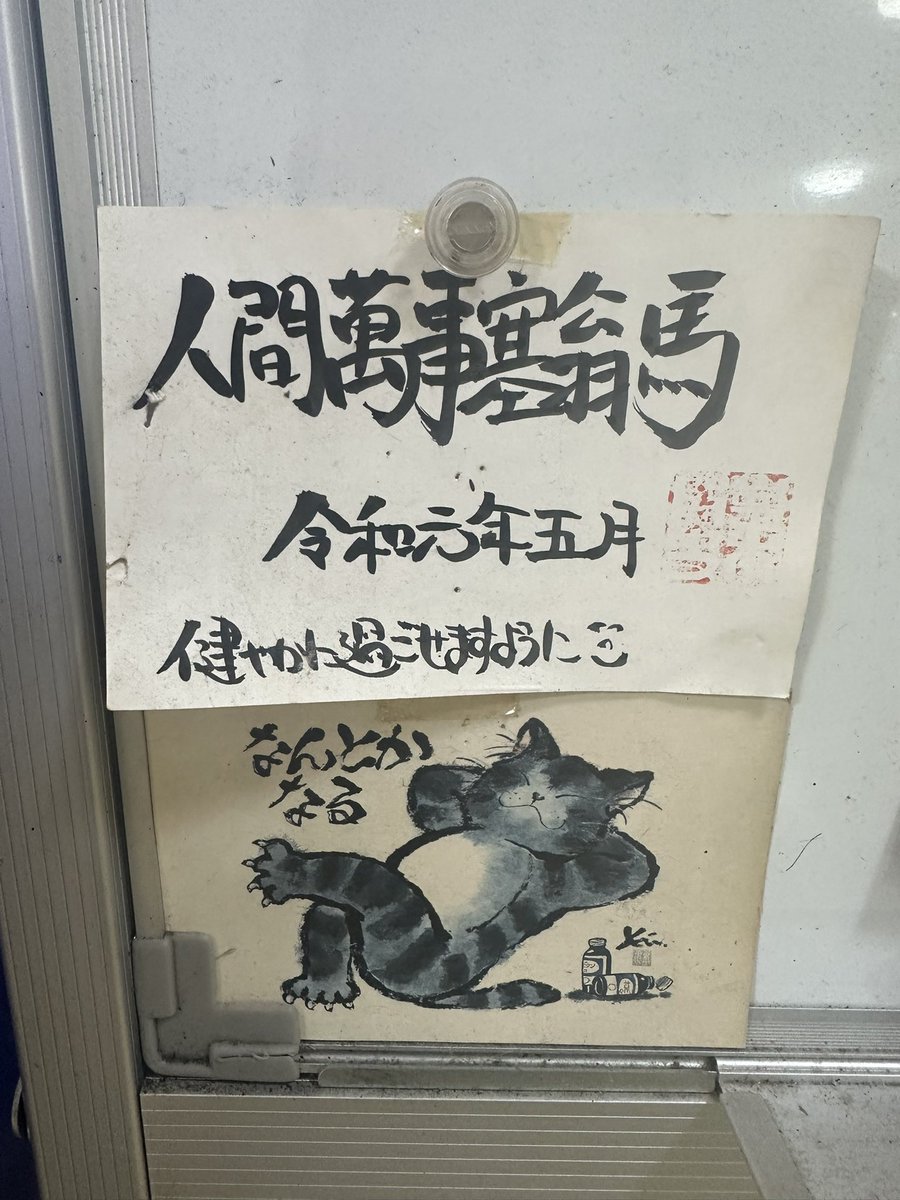 人間萬事塞翁馬
令和元年五月
健やかに過ごせますように
なんとか
なる